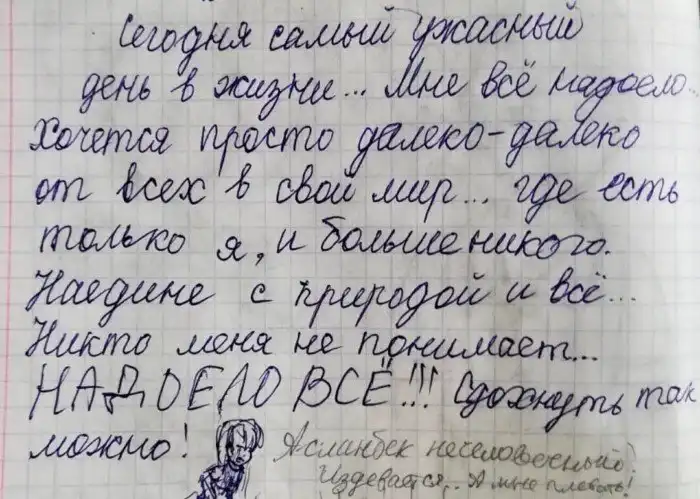 Сегодня самый ужасный
день в жизни... Мне всё надоело...
Хочется просто далеко-далеко
от всех в свой мир... где есть
только я, и больше никого.
Наедине с природой и всё...
Никто меня не понимает...
НАДОЕЛО ВСЁ!!! Сдохнуть так
можно!
Асланбек
Издевается.. А мне плевать!